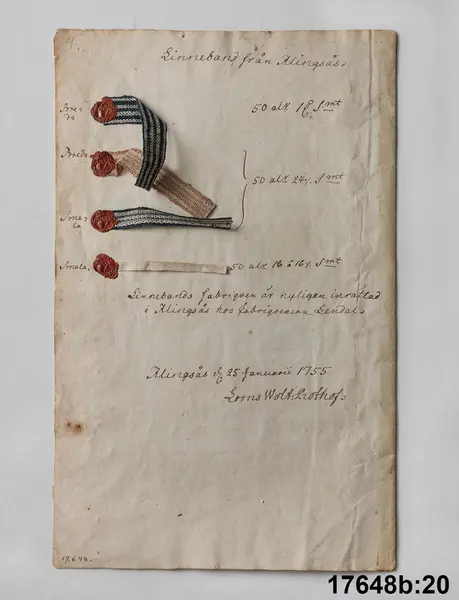 4.
Linneband från Alingsås.
Bre-
da
50 alr
Smt
Breda
50 alr 24
Smt
Sma-
la
Smala.
50 alr 16 à 16
Smt
Linnebands fabriqven är nyligen inrättad
i Alingsås hos fabriqveuren Lendal.
Alingsås d. 25 Januarii 1755
17648b:20